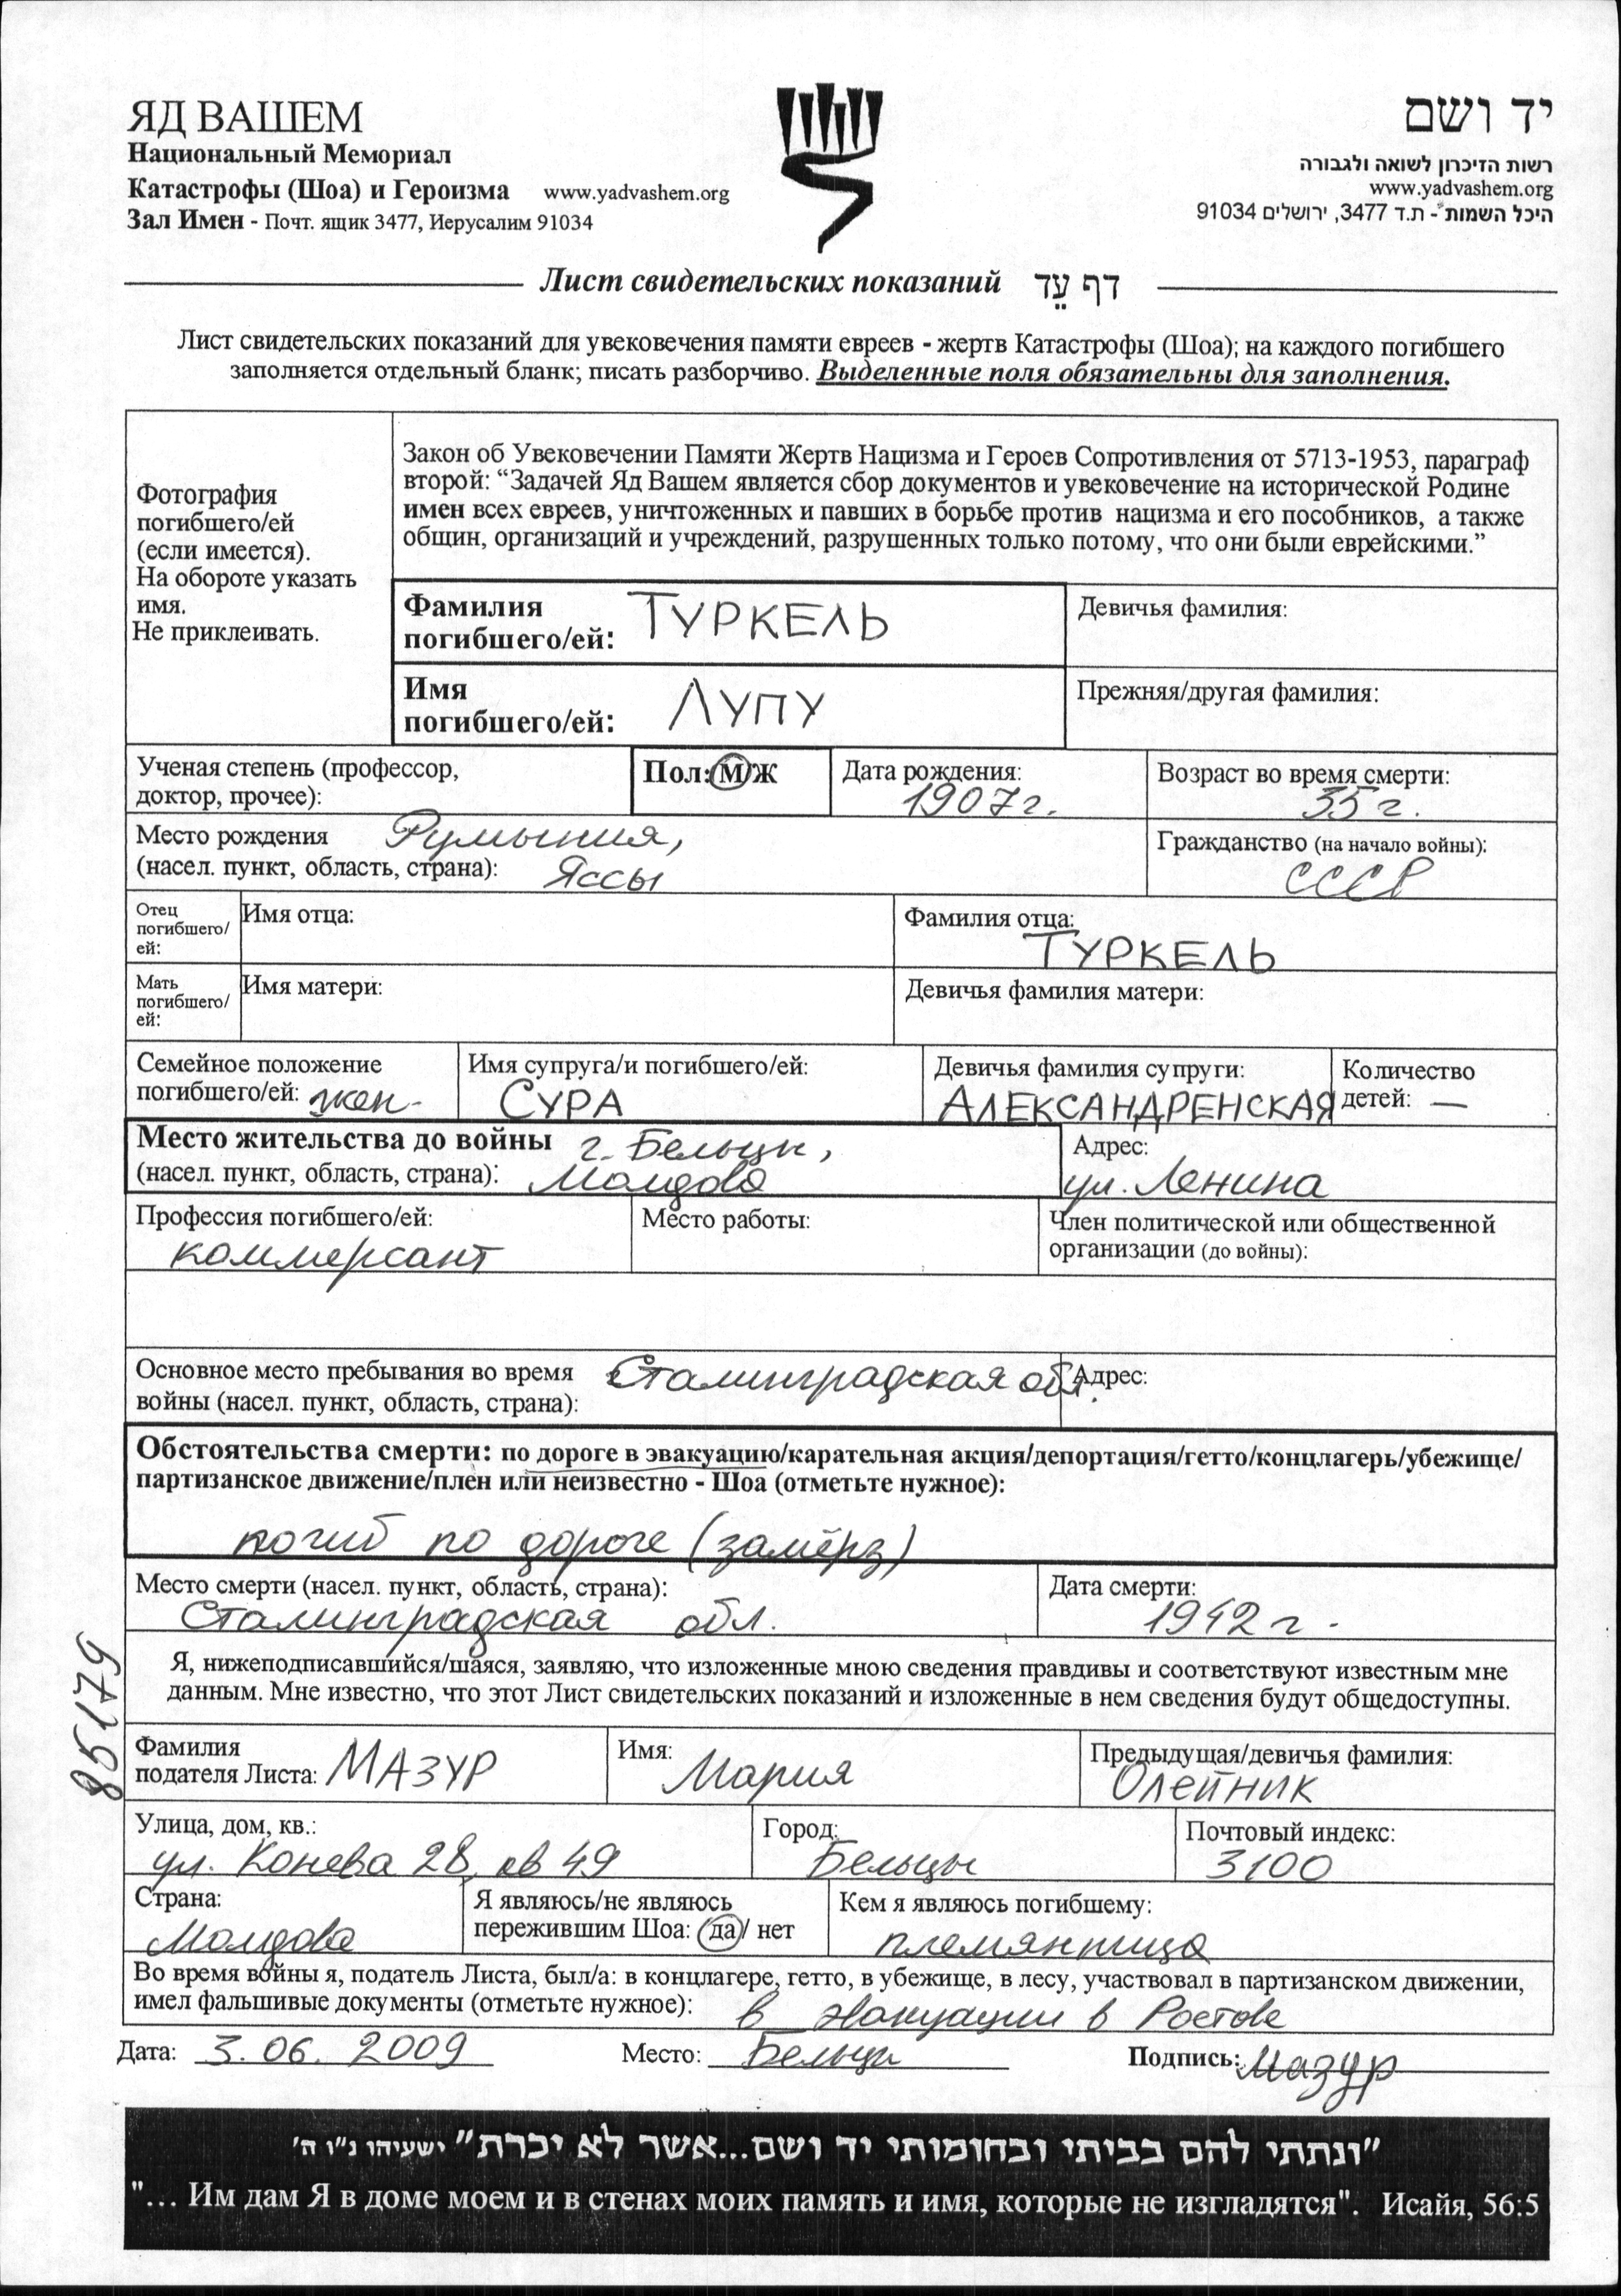 ЯД ВАШЕМ
Национальный Мемориал
Катастрофы (Шоа) и Героизма www.yadvashem.org
Зал Имен - Почт. ящик 3477, Иерусалим 91034
יד ושם
רשות הזיכרון לשואה ולגבורה
www.yadvashem.org
היכל השמות - ת.ד 3477, ירושלים 91034
Лист свидетельских показаний דף עֵד
Лист свидетельских показаний для увековечения памяти евреев - жертв Катастрофы (Шоа); на каждого погибшего
заполняется отдельный бланк; писать разборчиво. Выделенные поля обязательны для заполнения.
Фотография
погибшего/ей
(если имеется).
На обороте указать
имя.
Не приклеивать.
Закон об Увековечении Памяти Жертв Нацизма и Героев Сопротивления от 5713-1953, параграф
второй: “Задачей Яд Вашем является сбор документов и увековечение на исторической Родине
имен всех евреев, уничтоженных и павших в борьбе против нацизма и его пособников, а также
общин, организаций и учреждений, разрушенных только потому, что они были еврейскими.”
Фамилия
погибшего/ей: ТУРКЕЛЬ
Девичья фамилия:
Имя
погибшего/ей: ЛУПУ
Прежняя/другая фамилия:
Ученая степень (профессор,
доктор, прочее):
Пол: М/Ж
Дата рождения:
1907г.
Возраст во время смерти:
35 г.
Место рождения Румыния,
(насел. пункт, область, страна): Яссы
Гражданство (на начало войны):
СССР
Отец
погибшего/
ей:
Имя отца:
Фамилия отца:
ТУРКЕЛЬ
Мать
погибшего/
ей:
Имя матери:
Девичья фамилия матери:
Семейное положение
погибшего/ей: жен.
Имя супруга/и погибшего/ей:
СУРА
Девичья фамилия супруги:
АЛЕКСАНДРЕНСКАЯ
Количество
детей: —
Место жительства до войны г. Бельцы,
(насел. пункт, область, страна): Молдова
Адрес:
ул. Ленина
Профессия погибшего/ей:
коммерсант
Место работы:
Член политической или общественной
организации (до войны):
Основное место пребывания во время Сталинградская обл.
войны (насел. пункт, область, страна):
Адрес:
Обстоятельства смерти: по дороге в эвакуацию/карательная акция/депортация/гетто/концлагерь/убежище/
партизанское движение/плен или неизвестно - Шоа (отметьте нужное):
погиб по дороге (замёрз)
Место смерти (насел. пункт, область, страна):
Сталинградская обл.
Дата смерти:
1942 г.
Я, нижеподписавшийся/шаяся, заявляю, что изложенные мною сведения правдивы и соответствуют известным мне
данным. Мне известно, что этот Лист свидетельских показаний и изложенные в нем сведения будут общедоступны.
85179
Фамилия
подателя Листа: МАЗУР
Имя:
Мария
Предыдущая/девичья фамилия:
Олейник
Улица, дом, кв.:
ул. Конева 28, кв 49
Город:
Бельцы
Почтовый индекс:
3100
Страна:
Молдова
Я являюсь/не являюсь
пережившим Шоа: /да/ нет
Кем я являюсь погибшему:
племянница
Во время войны я, податель Листа, был/а: в концлагере, гетто, в убежище, в лесу, участвовал в партизанском движении,
имел фальшивые документы (отметьте нужное): в эвакуации в Ростове
Дата: 3.06. 2009 Место: Бельцы Подпись: Мазур
”ונתתי להם בביתי ובחומותי יד ושם...אשר לא יכרת“ ישעיהו נ"ו ה'
"... Им дам Я в доме моем и в стенах моих память и имя, которые не изгладятся". Исайя, 56:5